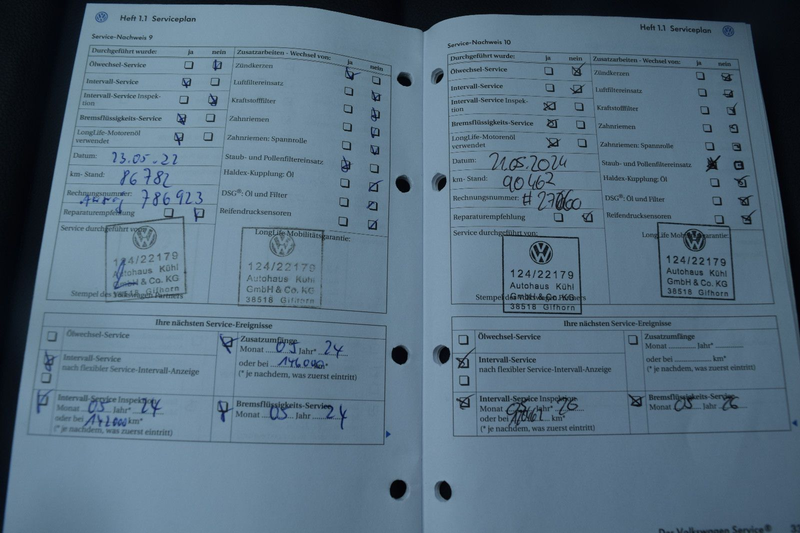 Heft 1.1 Serviceplan
Service-Nachweis 9
Durchgeführt wurde: ja nein
Ölwechsel-Service
Intervall-Service
Intervall-Service Inspek-
tion
Bremsflüssigkeits-Service
LongLife-Motorenöl
verwendet
Datum: 23.05.22
km-Stand: 86782
Rechnungsnummer: 786923
Reparaturempfehlung
Service durchgeführt von:
124/22179
Autohaus Kühl
GmbH & Co. KG
38518 Gifhorn
Stempel des Partners
Zusatzarbeiten - Wechsel von: ja nein
Zündkerzen
Luftfiltereinsatz
Kraftstofffilter
Zahnriemen
Zahnriemen: Spannrolle
Staub- und Pollenfiltereinsatz
Haldex-Kupplung: Öl
DSG®: Öl und Filter
Reifendrucksensoren
LongLife Mobilitätsgarantie:
124/22179
Autohaus Kühl
GmbH & Co. KG
38518 Gifhorn
Ihre nächsten Service-Ereignisse
Ölwechsel-Service
Intervall-Service
nach flexibler Service-Intervall-Anzeige
Intervall-Service Inspektion
Monat 05 Jahr* 24
oder bei km*
(* je nachdem, was zuerst eintritt)
Zusatzumfänge
Monat 05 Jahr* 24
oder bei
(* je nachdem, was zuerst eintritt)
Bremsflüssigkeits-Service
Monat 05 Jahr 24
Heft 1.1 Serviceplan
Service-Nachweis 10
Durchgeführt wurde: ja nein
Ölwechsel-Service
Intervall-Service
Intervall-Service Inspek-
tion
Bremsflüssigkeits-Service
LongLife-Motorenöl
verwendet
Datum: 21.05.2024
km-Stand: 90462
Rechnungsnummer:
Reparaturempfehlung
Service durchgeführt von:
124/22179
Autohaus Kühl
GmbH & Co. KG
38518 Gifhorn
Zusatzarbeiten - Wechsel von: ja nein
Zündkerzen
Luftfiltereinsatz
Kraftstofffilter
Zahnriemen
Zahnriemen: Spannrolle
Staub- und Pollenfiltereinsatz
Haldex-Kupplung: Öl
DSG®: Öl und Filter
Reifendrucksensoren
124/22179
Autohaus Kühl
GmbH & Co. KG
38518 Gifhorn
Ihre nächsten Service-Ereignisse
Ölwechsel-Service
Intervall-Service
nach flexibler Service-Intervall-Anzeige
Intervall-Service Inspektion
Monat Jahr*
oder bei km*
(* je nachdem, was zuerst eintritt)
Zusatzumfänge
Monat Jahr*
oder bei km*
(* je nachdem, was zuerst eintritt)
Bremsflüssigkeits-Service
Monat 05 Jahr 26
Der Volkswagen Service®